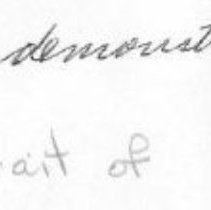 demonst
ait of